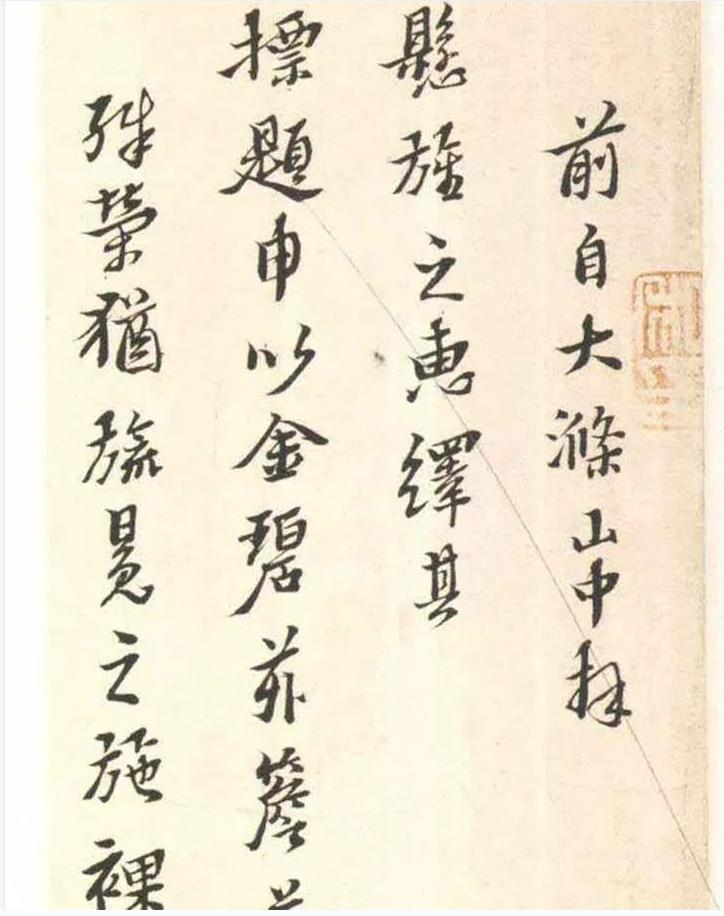 前自大滌山中拜
懸旌之惠繹其
摽題申以金碧茆簷
殊榮猶旒冕之施裸